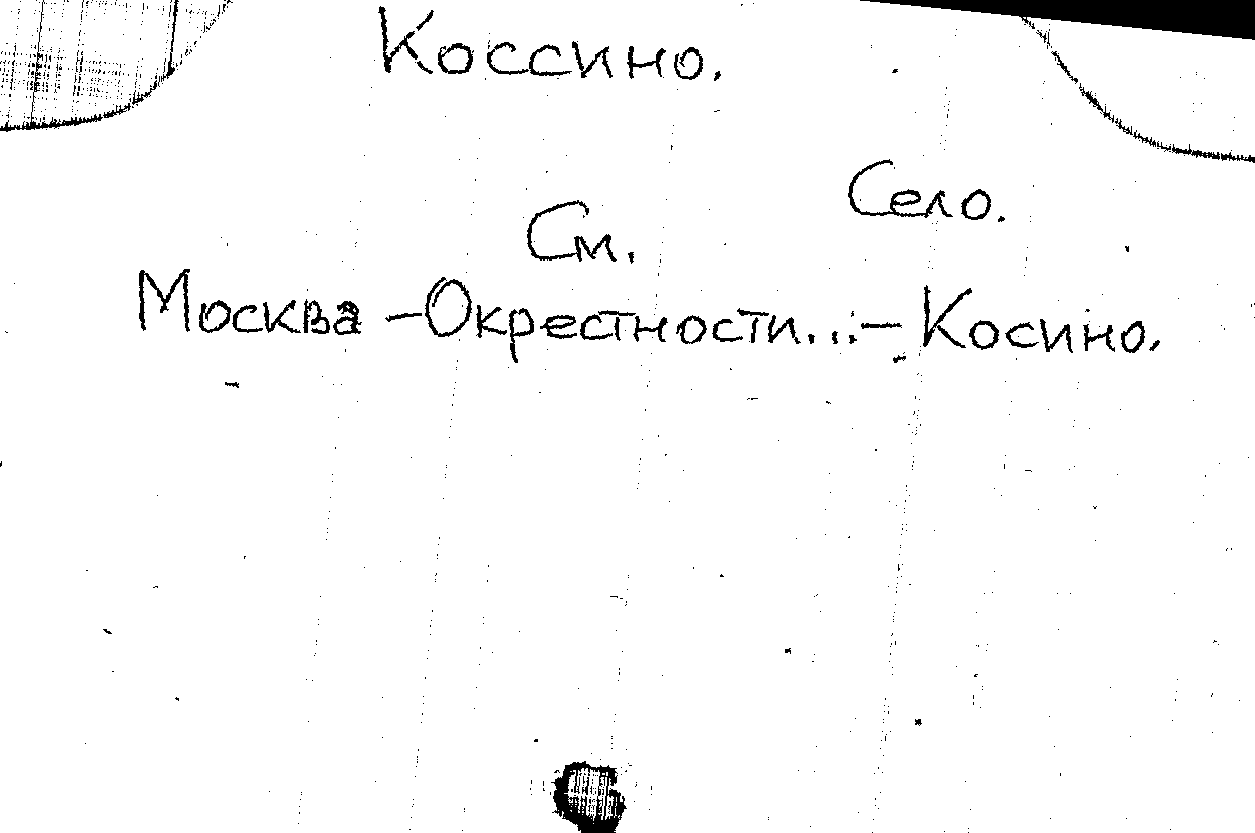 Коссино.
Село.
См.
Москва - Окрестности... - Косино.